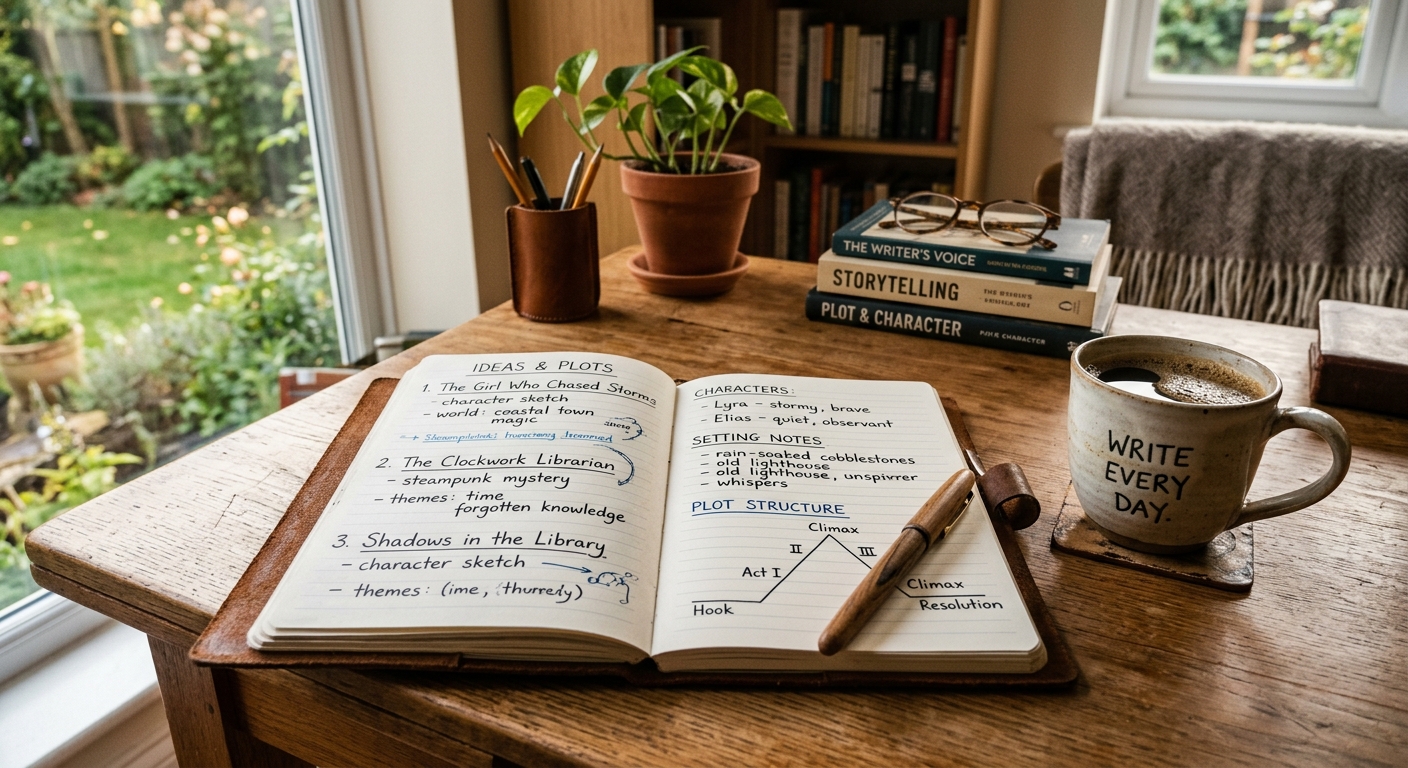 IDEAS & PLOTS
1. The Girl Who Chased Storms
- character sketch
- world: coastal town
magic
2. The Clockwork Librarian
- steampunk mystery
- themes: time
forgotten knowledge
3. Shadows in the Library
- character sketch
- themes: (ime, (thurredy)
CHARACTERS:
- Lyra - stormy, brave
- Elias - quiet, observant
SETTING NOTES
- rain-soaked cobblestones
- old lighthouse
- old lighthouse, unspivrer
- whispers
PLOT STRUCTURE
Climax
II III
Act I
Climax
Hook
Resolution
THE WRITER'S VOICE
STORYTELLING
PLOT & CHARACTER
WRITE
EVERY
DAY.